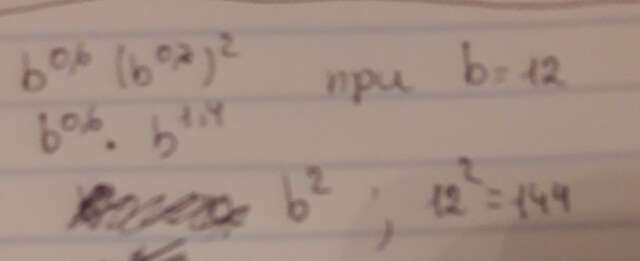 b^0,6 (b^0,7)^2 при b = 12
b^0,6 · b^1,4
b^2 ; 12^2 = 144